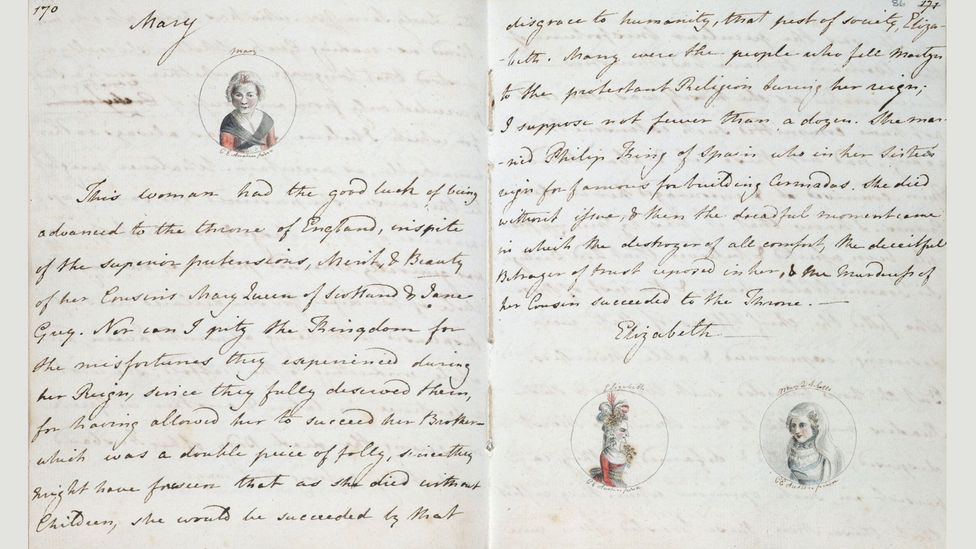 170
Mary
Mary
C E Austen pinx
This woman had the good luck of being
advanced to the throne of England, inspite
of the superior pretensions, Merit, & Beauty
of her Cousins Mary Queen of Scotland & Jane
Grey. Nor can I pity the Kingdom for
the misfortunes they experienced during
her Reign, since they fully deserved them,
for having allowed her to succeed her Brother—
which was a double peice of folly, since they
might have forseen that as she died without
Children, she would be succeeded by that
86 171
disgrace to humanity, that pest of society, Eliza-
-beth. Many were the people who fell Martyrs
to the protestant Religion during her reign;
I suppose not fewer than a dozen. She mar-
-ried Philip King of Spain who in her Sister's
reign for famous for building Armadas. She died
without issue, & then the dreadful moment came
in which the destroyer of all comfort, the deceitful
Betrayer of trust reposed in her, & the Murderess of
her Cousin succeeded to the Throne.—
Elizabeth
Elizabeth
C E Austen pinx
Mary Q. of Scots
C E Austen pinx